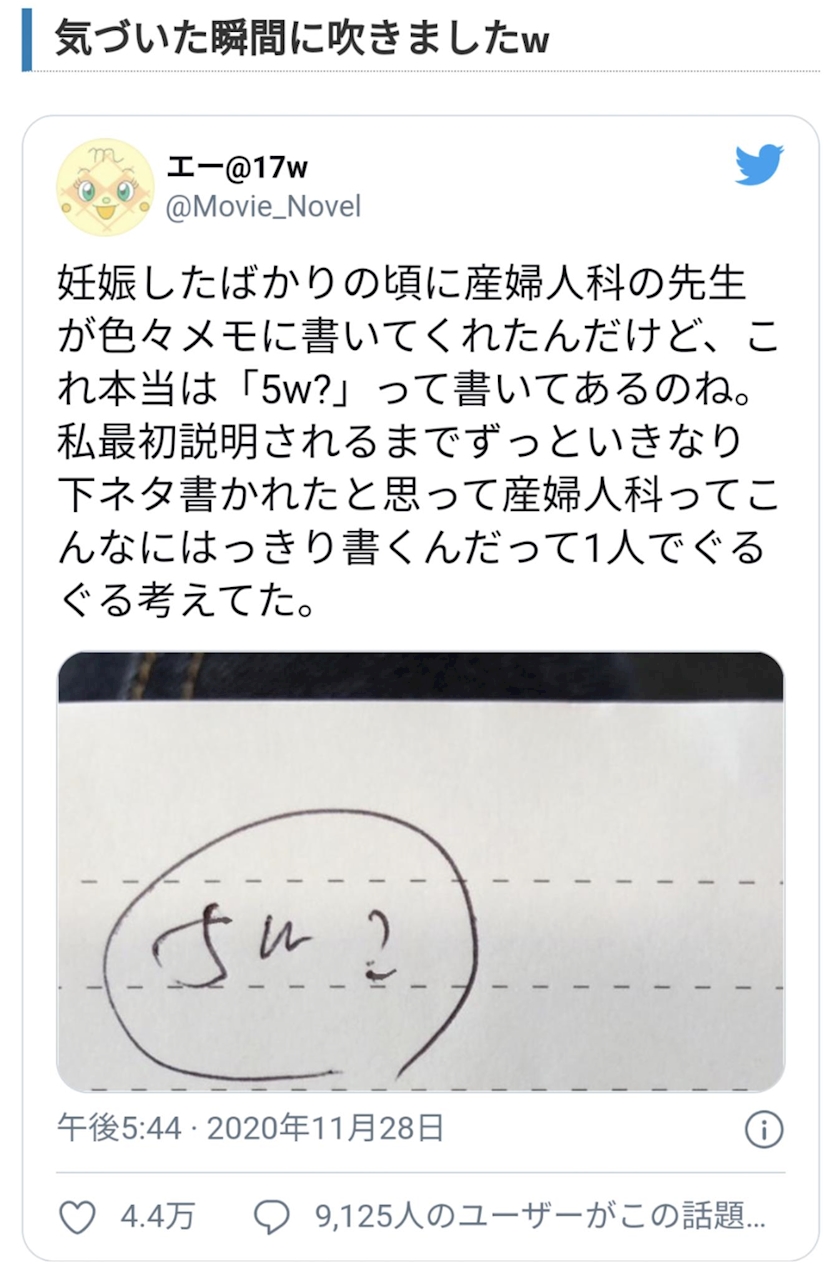 気づいた瞬間に吹きましたw
エー@17w
@Movie_Novel
妊娠したばかりの頃に産婦人科の先生
が色々メモに書いてくれたんだけど、こ
れ本当は「5w?」って書いてあるのね。
私最初説明されるまでずっといきなり
下ネタ書かれたと思って産婦人科ってこ
んなにはっきり書くんだって1人でぐる
ぐる考えてた。
5w?
午後5:44 · 2020年11月28日
4.4万 9,125人のユーザーがこの話題...